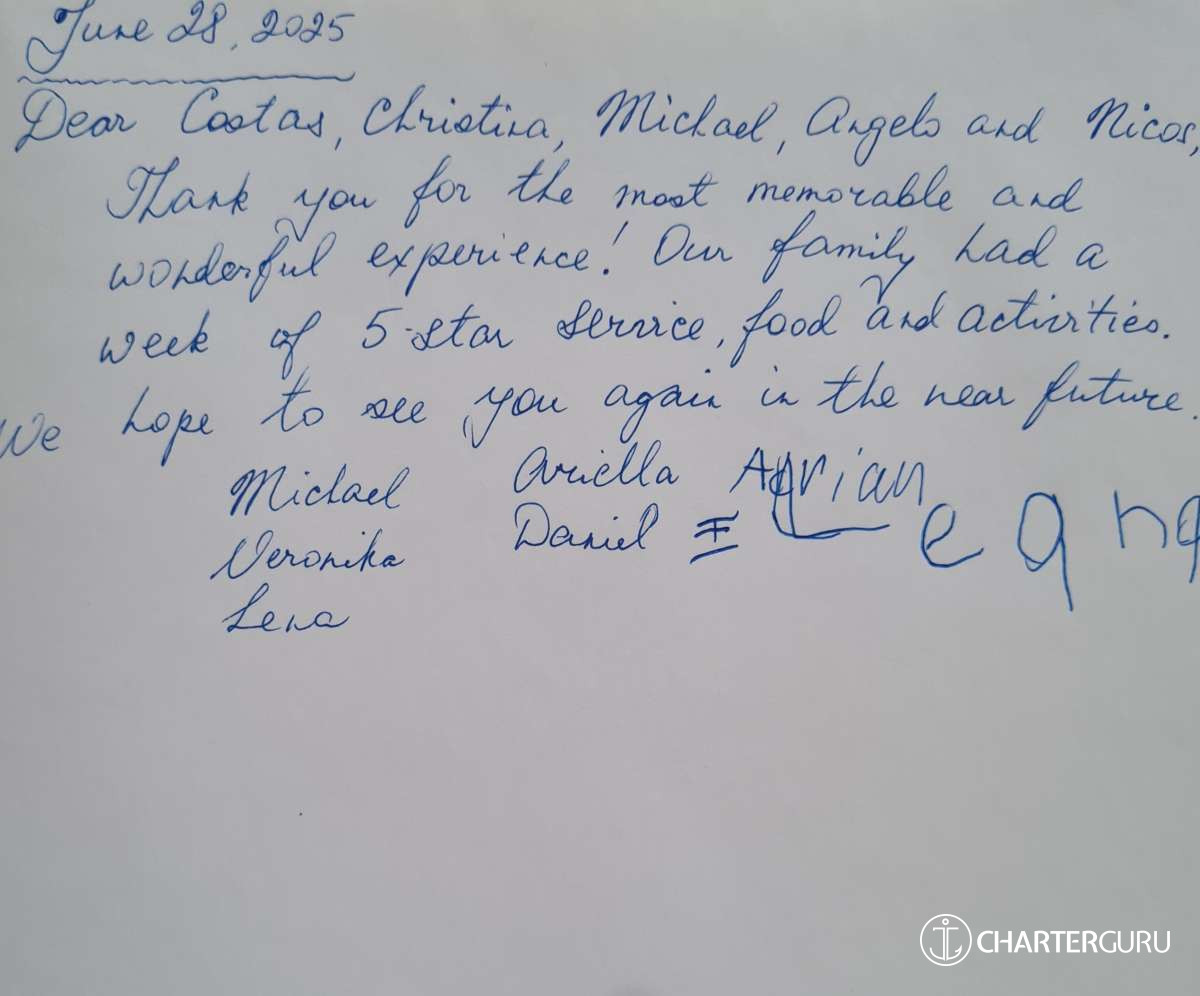 June 28, 2025
Dear Costas, Christina, Michael, Angelo and Nicos,
Thank you for the most memorable and
wonderful experience! Our family had a
week of 5-star service, food and activities.
We hope to see you again in the near future.
Michael Ariella Adrian
Veronika Daniel
Lena
CHARTERGURU